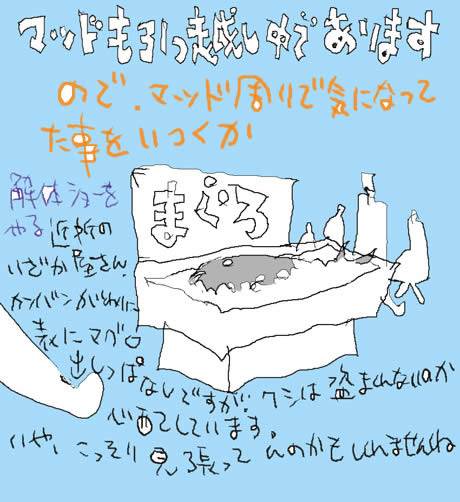 マッドも引っ越し中であります
ので、マッド周りで気になって
た事をいつくか
まぐろ
解体ショーを
やる近所の
いざか屋さん。
カンバンがわりに
表にマグロ
出しっぱなしですが!ワシは盗まんないか
心配しています。
いや、こっそり見張ってんのかもしれませんね